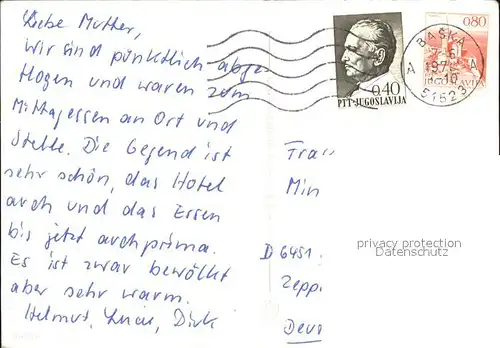 Liebe Mutter,
wir sind pünktlich abge-
flogen und waren zum
Mittagessen an Ort und
Stelle. Die Gegend ist
sehr schön, das Hotel
auch und das Essen
bis jetzt auch prima.
Es ist zwar bewölkt
aber sehr warm.
Helmut, Dirk
0.40
PTT-JUGOSLAVIJA
0.80
BAŠKA
51523
Frau
Min
D 6451
Zepp
Deu
privacy protection
Datenschutz